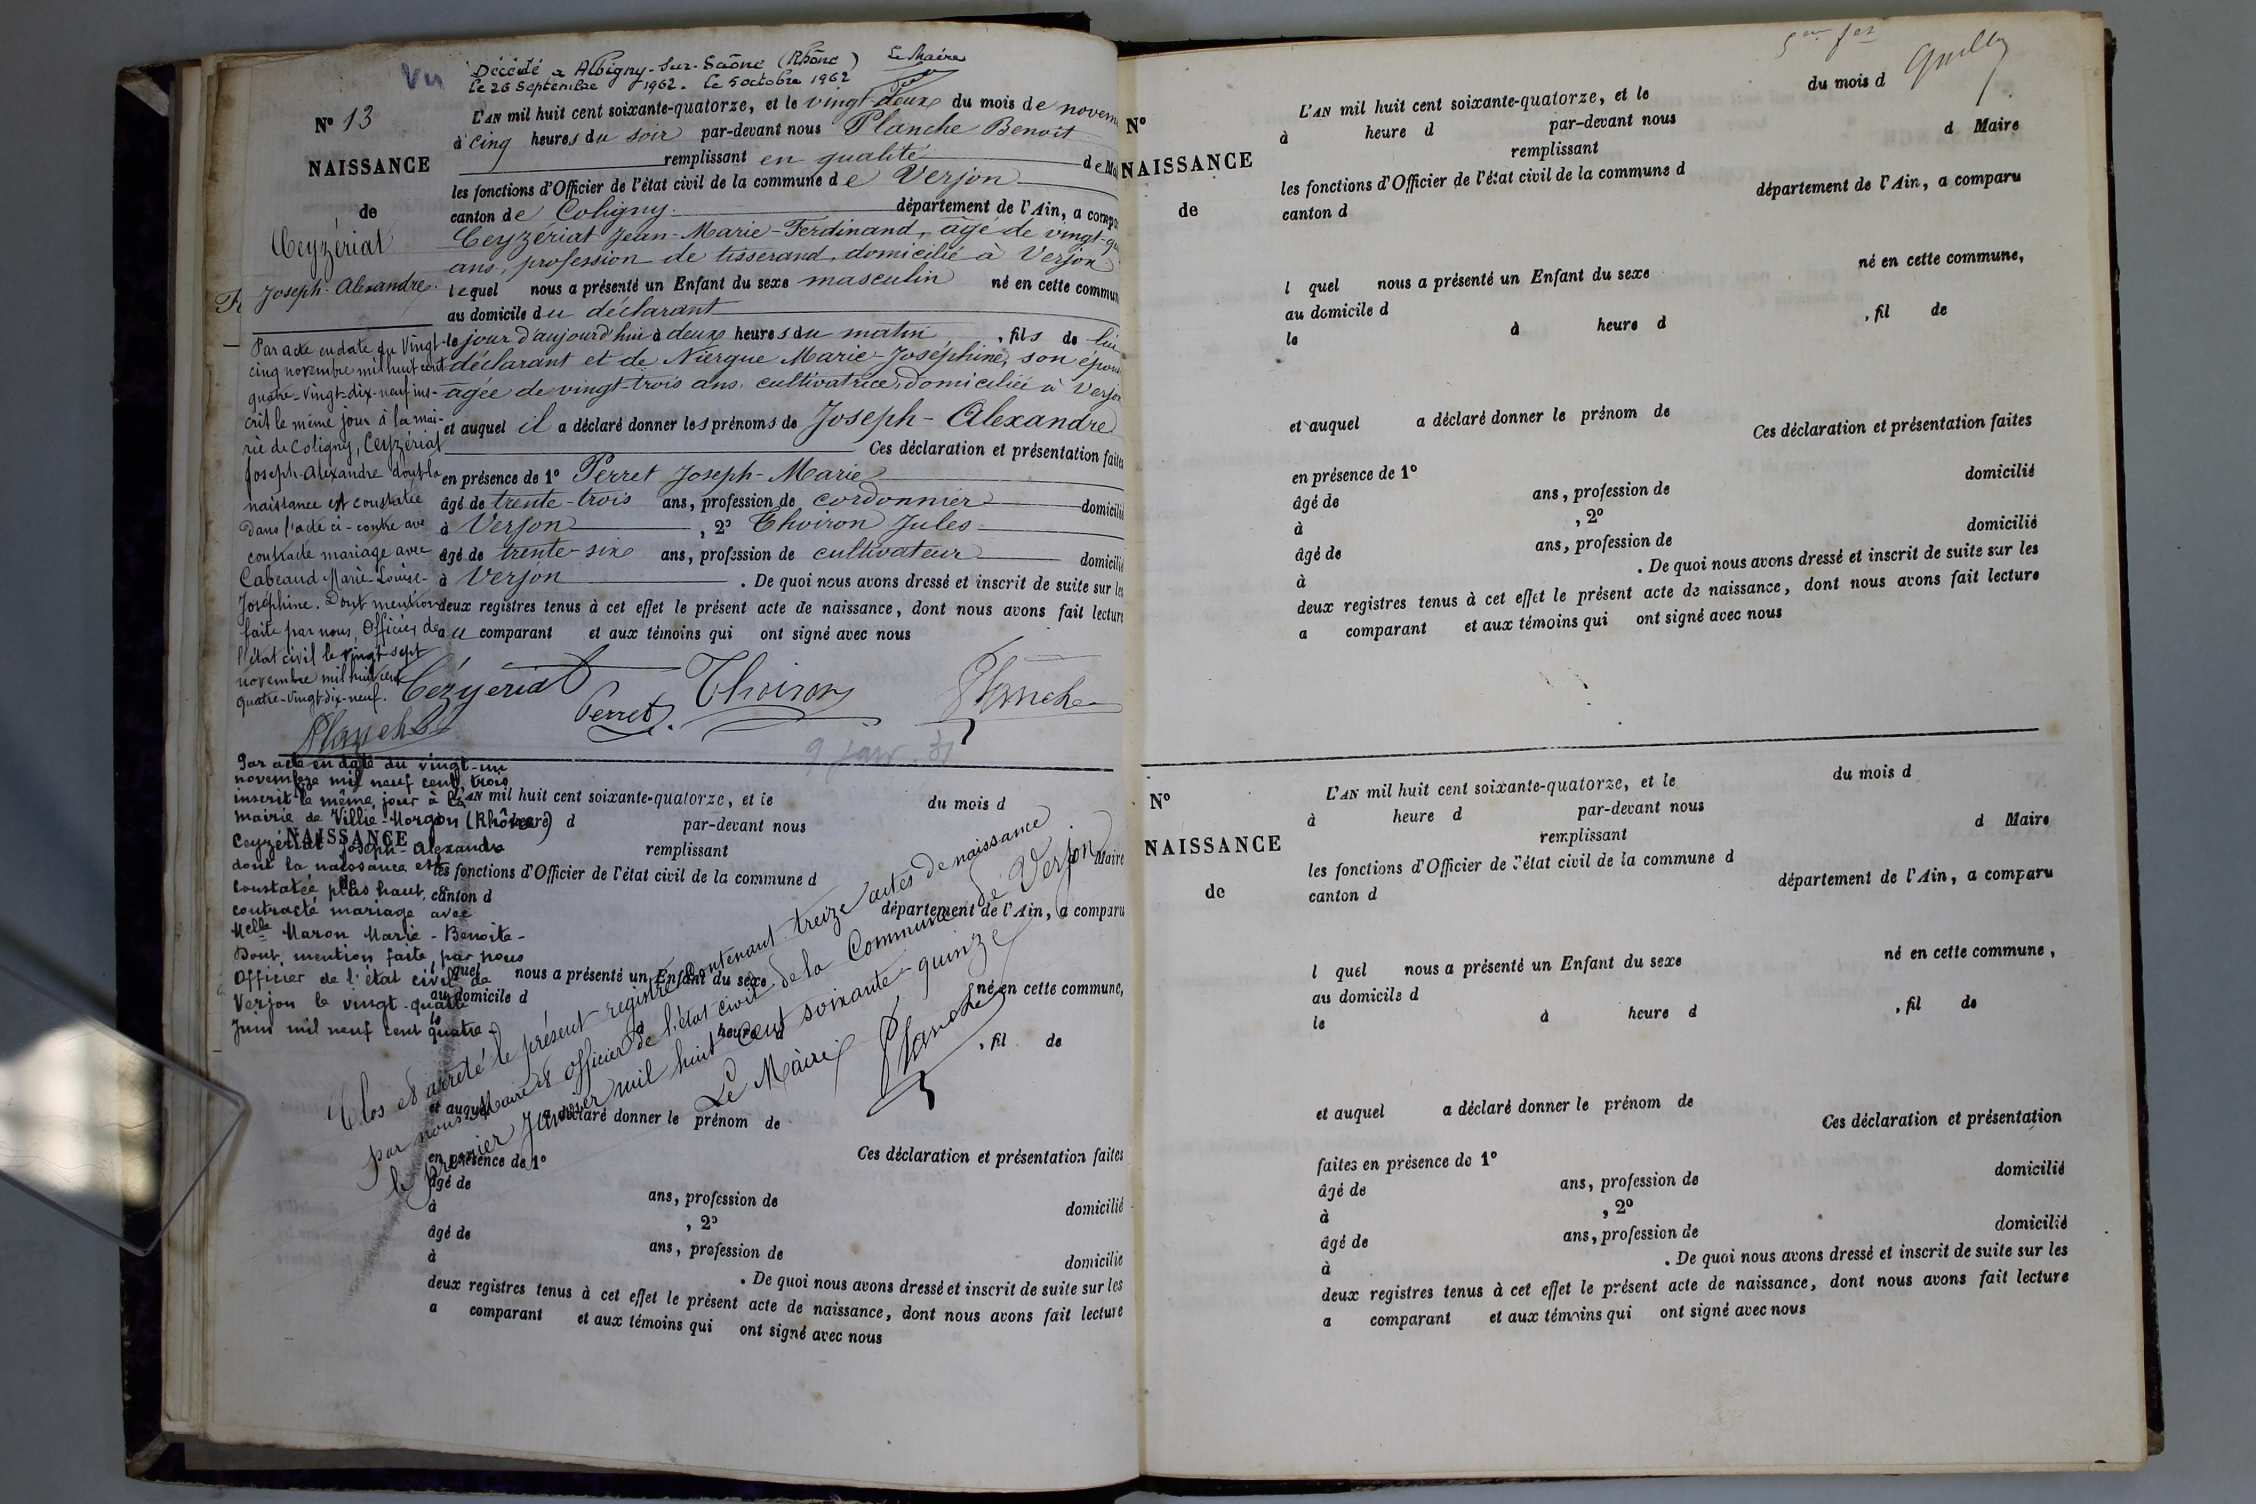 Vu
Décédé à Albigny-sur-Saône (Rhône) Le Maire
le 26 Septembre 1962. le 5 octobre 1962
N° 13
NAISSANCE
de
Ceyzériat
Joseph-Alexandre
L'AN mil huit cent soixante-quatorze, et le vingt-deux du mois de novem
à cinq heures du soir par-devant nous Planche Benoit
remplissant en qualité de Mai
les fonctions d'Officier de l'état civil de la commune de Verjon
canton de Coligny département de l'Ain, a compa
Ceyzériat Jean-Marie-Ferdinand, âgé de vingt-
ans, profession de tisserand, domicilié à Verjon
lequel nous a présenté un Enfant du sexe masculin né en cette commun
au domicile du déclarant
le jour d'aujourd'hui à deux heures du matin, fils de lui
déclarant et de Niergue Marie-Joséphine, son épou
âgée de vingt-trois ans, cultivatrice, domiciliée à Verjon
et auquel il a déclaré donner les prénoms de Joseph-Alexandre
Ces déclaration et présentation faites
en présence de 1° Perret Joseph-Marie
âgé de trente-trois ans, profession de cordonnier domicilié
à Verjon, 2° Thoiron Jules
âgé de trente-six ans, profession de cultivateur domicilié
à Verjon. De quoi nous avons dressé et inscrit de suite sur les
deux registres tenus à cet effet le présent acte de naissance, dont nous avons fait lecture
au comparant et aux témoins qui ont signé avec nous
Cézyeriat Perret Thoiron Planche
Par acte en date du vingt-
cinq novembre mil huit cent
quatre-vingt-dix-neuf ins-
crit le même jour à la mai-
rie de Coligny, Ceyzériat
Joseph-Alexandre dont la
naissance est constatée
dans l'acte ci-contre a
contracté mariage avec
Cabeaud Marie-Louise-
Joséphine. Dont mention
faite par nous, Officier de
l'état civil le vingt-sept
novembre mil huit cent
quatre-vingt-dix-neuf.
Planche
9 janv. 31
Par acte en date du vingt-un
novembre mil neuf cent trois
inscrit le même jour à la
mairie de Villié-Morgon (Rhône)
Ceyzériat Joseph-Alexandre
dont la naissance est
constatée plus haut, a
contracté mariage avec
Melle Maron Marie-Benoite-
Dont mention faite par nous
Officier de l'état civil de
Verjon le vingt-quatre
Juin mil neuf cent quatre-
NAISSANCE
de
L'AN mil huit cent soixante-quatorze, et le du mois d
à heure d par-devant nous
remplissant d Maire
les fonctions d'Officier de l'état civil de la commune d
canton d département de l'Ain, a comparu
l quel nous a présenté un Enfant du sexe né en cette commune,
au domicile d
le à heure d , fil de
et auquel a déclaré donner le prénom de
Ces déclaration et présentation faites
en présence de 1°
âgé de ans, profession de domicilié
à , 2°
âgé de ans, profession de domicilié
à . De quoi nous avons dressé et inscrit de suite sur les
deux registres tenus à cet effet le présent acte de naissance, dont nous avons fait lecture
a comparant et aux témoins qui ont signé avec nous
Clos et arrêté le présent registre contenant treize actes de naissance
par nous Maire et officier de l'état civil de la Commune de Verjon
le premier Janvier mil huit cent soixante-quinze
Le Maire
Planche
N°
NAISSANCE
de
L'AN mil huit cent soixante-quatorze, et le du mois d
à heure d par-devant nous
remplissant d Maire
les fonctions d'Officier de l'état civil de la commune d
canton d département de l'Ain, a comparu
l quel nous a présenté un Enfant du sexe né en cette commune,
au domicile d
le à heure d , fil de
et auquel a déclaré donner le prénom de
Ces déclaration et présentation faites
en présence de 1°
âgé de ans, profession de domicilié
à , 2°
âgé de ans, profession de domicilié
à . De quoi nous avons dressé et inscrit de suite sur les
deux registres tenus à cet effet le présent acte de naissance, dont nous avons fait lecture
a comparant et aux témoins qui ont signé avec nous
N°
NAISSANCE
de
L'AN mil huit cent soixante-quatorze, et le du mois d
à heure d par-devant nous
remplissant d Maire
les fonctions d'Officier de l'état civil de la commune d
canton d département de l'Ain, a comparu
l quel nous a présenté un Enfant du sexe né en cette commune,
au domicile d
le à heure d , fil de
et auquel a déclaré donner le prénom de
Ces déclaration et présentation
faites en présence de 1°
âgé de ans, profession de domicilié
à , 2°
âgé de ans, profession de domicilié
à . De quoi nous avons dressé et inscrit de suite sur les
deux registres tenus à cet effet le présent acte de naissance, dont nous avons fait lecture
a comparant et aux témoins qui ont signé avec nous